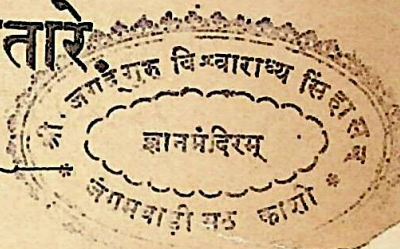 तारे
श्री जगद्गुरु विश्वाराध्य सिंहासन
ज्ञानमंदिरम्
जंगमवाड़ी मठ काशी